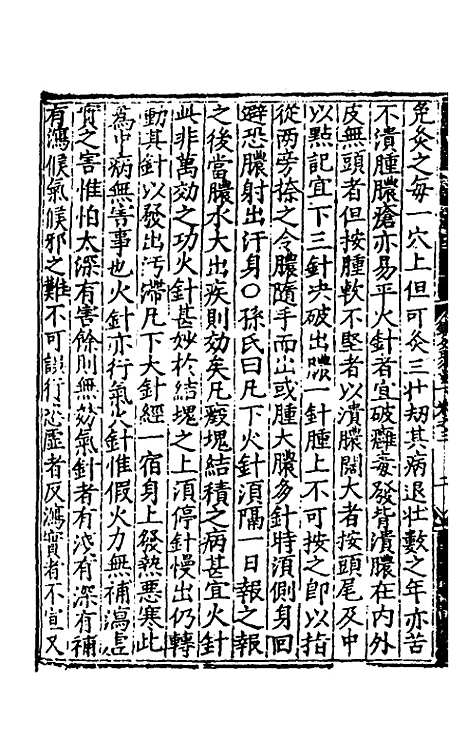 免灸之每一穴上但可灸三壮刼其病退壮數之年亦苦
不潰腫膿瘡亦易平火針者宜破癰毒發背潰膿在內外
皮無頭者但按腫軟不堅者以潰膿闊大者按頭尾及中
以點記宜下三針决破出膿一針腫上不可按之即以指
從兩旁捺之令膿隨手而出或腫大膿多針時須側身回
避恐膿射出汙身〇孫氏曰凡下火針須隔一日報之報
之後當膿水大出疾則効矣凡癥塊結積之病甚宜火針
此非萬効之功火針甚妙於結塊之上須停針慢出仍轉
動其針以發出汚滯凡下大針經一宿身上發熱惡寒此
為中病無害事也火針亦行氣火針惟假火力無補瀉虛
實之害惟怕太深有害餘則無妨氣針者有浅有深有補
有瀉候氣候邪之難不可誤行恐虛者反瀉實者不宣又